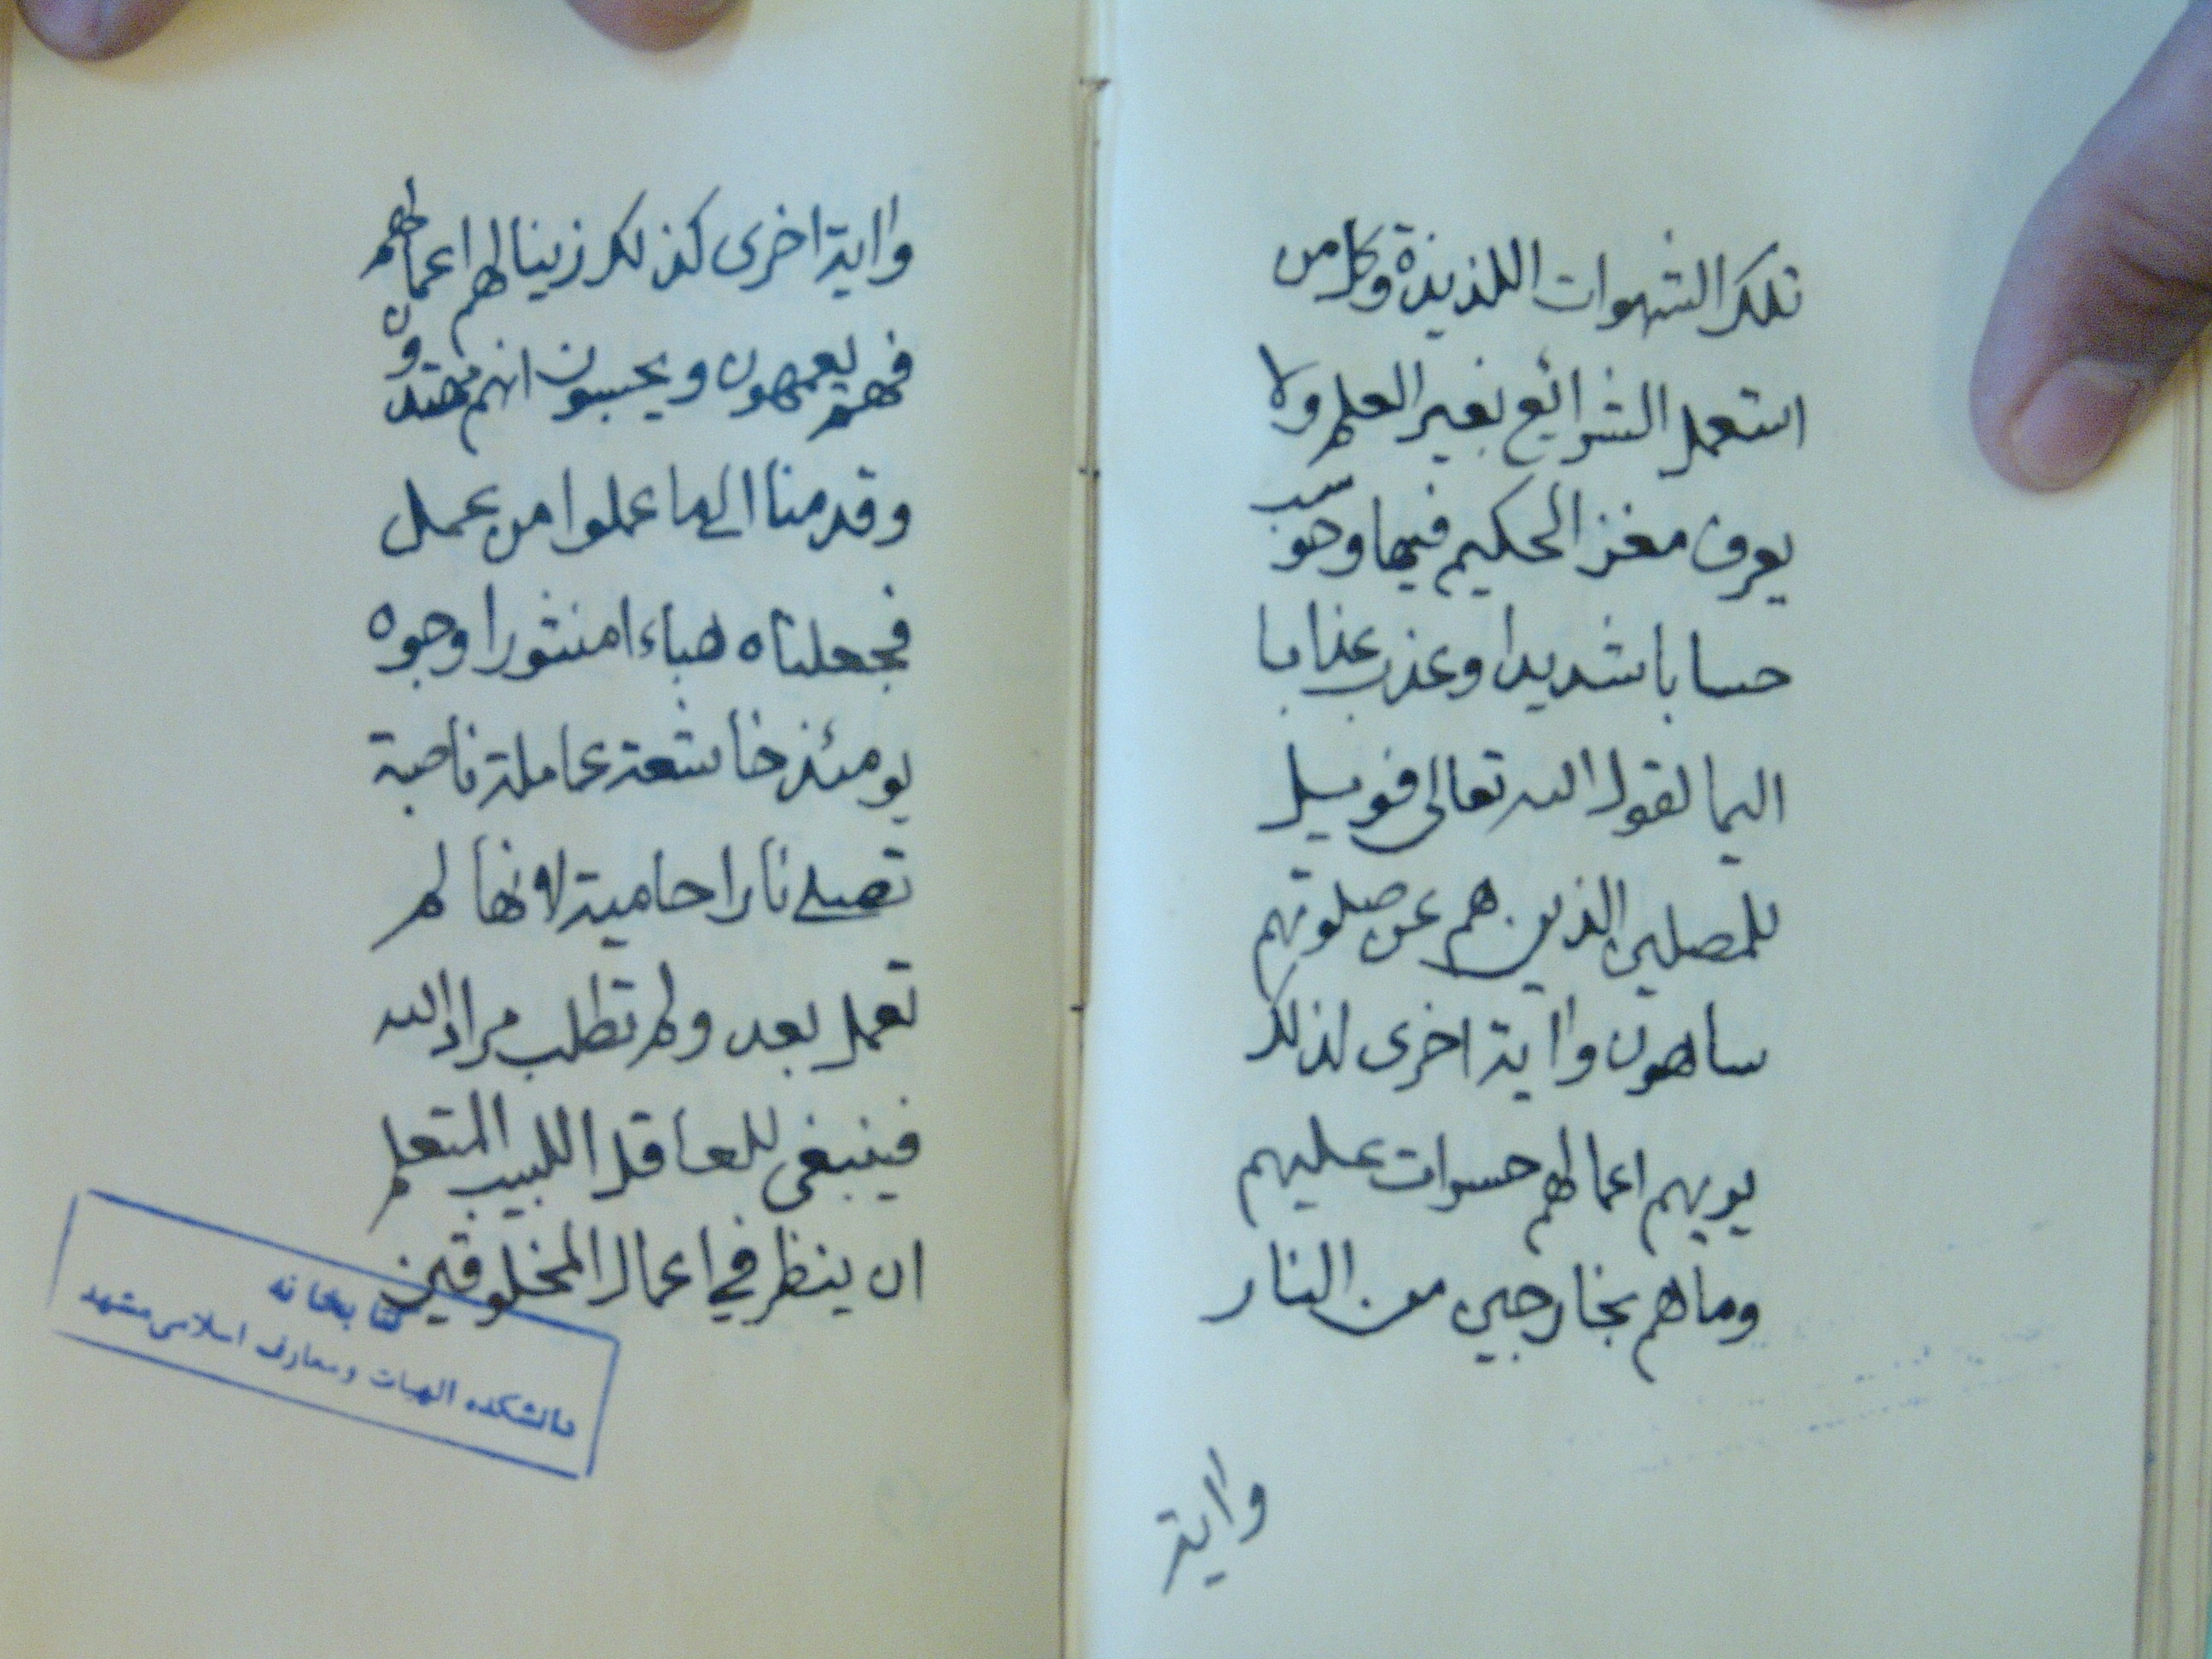 تلك الشهوات اللذيذة وكل من
استعمل الشرائع بغير العلم ولا
يعرف مغز الحكيم فيها وحوسب
حسابا شديدا وعذب عذابا
اليما لقول الله تعالى فويل
للمصلين الذين هم عن صلوتهم
ساهون واية اخرى لذلك
يريهم اعمالهم حسرات عليهم
وما هم بخارجين من النار
واية
واية اخرى كذلك زينا لهم اعمالهم
فهم يعمهون ويحسبون انهم مهتدون
وقدمنا الى ما عملوا من عمل
فجعلناه هباءا منثورا وجوه
يومئذ خاشعة عاملة ناصبة
تصلى نارا حامية لانها لم
تعمل بعد ولم تطلب مراد الله
فينبغي للعاقل اللبيب المتعلم
ان ينظر في اعمال المخلوقين
كتابخانه
دانشكده الهيات و معارف اسلامى مشهد